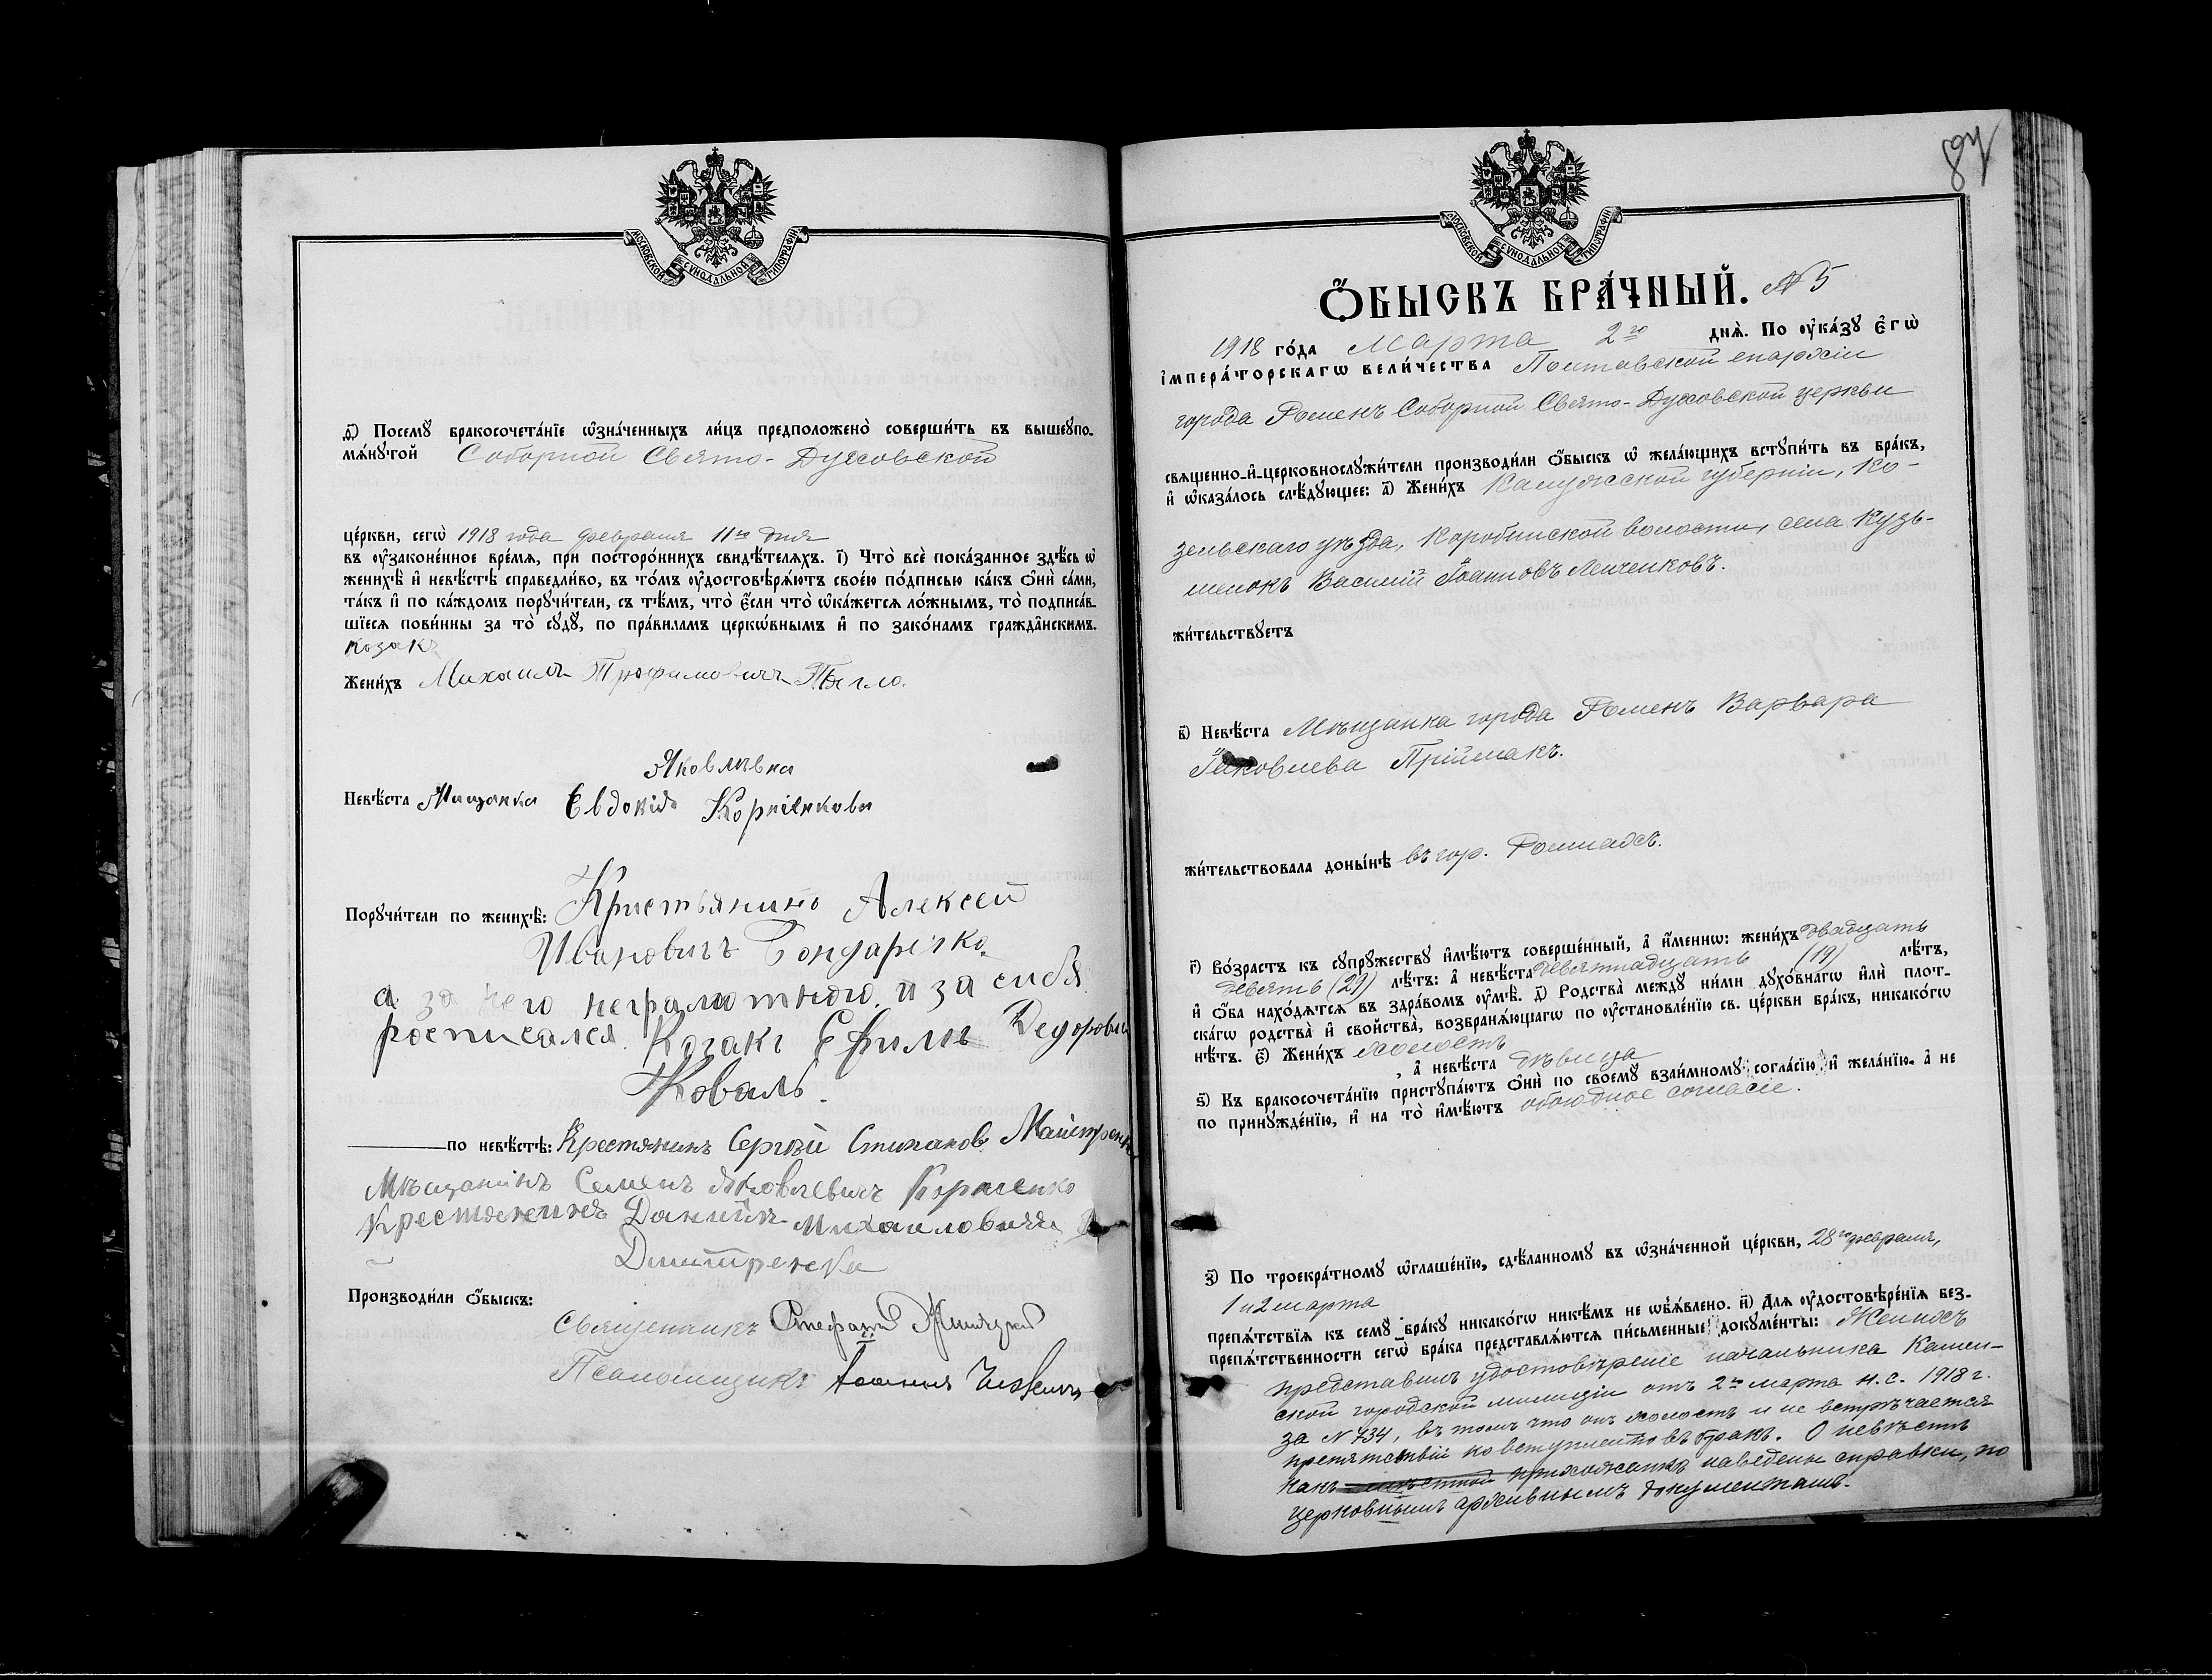 МОСКОВСКОЙ СѴНОДАЛЬНОЙ ТИПОГРАФІИ
д҃) Посемꙋ бракосочета́нїе ѡ҆зна́ченныхъ ли́цъ предположено̀ соверши́ть въ вышеꙋпо-
мѧ́нꙋтой Соборной Свято-Духовской
це́ркви, сегѡ̀ 1918 года февраля 11го дня
въ ᲂу҆законе́нное вре́мѧ, при посторо́ннихъ свидѣ́телѧхъ. і҃) Что̀ всѐ пока́занное здѣ́сь ѡ҆
женихѣ̀ и҆ невѣ́стѣ справедли́во, въ то́мъ ᲂу҆достовѣрѧ́ютъ свое́ю по́дписью ка́къ ѻ҆нѝ са́ми,
та́къ и҆ по ка́ждомъ порꙋчи́тели, съ тѣ́мъ, что̀ є҆́сли что̀ ѡ҆ка́жетсѧ ло́жнымъ, то̀ подписа́в-
шїесѧ пови́нны за то̀ сꙋдꙋ̀, по пра́виламъ церкѡ́внымъ и҆ по зако́намъ гражда̑нскимъ.
козакъ
Жени́хъ Михаилъ Трофимовичъ Тягло.
Яковливна
Невѣ́ста Мищанка Евдокія Корніенкова
Порꙋчи́тели по женихѣ̀: Кристьянинъ Алексей
Ивановичъ Бондаренко
а за него неграмотного и за сибя
росписался Козакъ Ефимъ Федорови
Коваль.
по невѣ́стѣ: Крестянинъ Сергѣй Стипановъ Майстренко
Мѣщанинъ Семенъ Яковлевичъ Корніенко
Крестянинъ Даниилъ Михаиловичъ
Дмитренко
Производи́ли ѻ҆́быскъ:
Священникъ Стефанъ
Псаломщикъ Іоаннъ
МОСКОВСКОЙ СѴНОДАЛЬНОЙ ТИПОГРАФІИ
Ѻ҆́БЫСКЪ БРА́ЧНЫЙ. № 5
1918 го́да Марта 2го днѧ̀. По ᲂу҆ка́зꙋ є҆гѡ̀
і҆мпера́торскагѡ вели́чества Полтавской епархіи
города Роменъ Соборной Свято-Духовской церкви
свѧщенно-и҆-церковнослꙋжи́тели производи́ли ѻ҆́быскъ ѡ҆ жела́ющихъ встꙋпи́ть въ бра́къ,
и҆ ѡ҆каза́лось слѣ́дꙋющее: а҃) Жени́хъ Калужской губерніи, Ко-
зельскаго уѣзда, Коробинской волости, села Кузь-
менокъ Василій Іоанновъ Ленченковъ.
жи́тельствꙋетъ
в҃) Невѣ́ста Мѣщанка города Роменъ Варвара
Іаковлева Пріймакъ.
жи́тельствовала доны́нѣ въ гор. Ромнахъ.
г҃) Во́зрастъ къ сꙋпрꙋ́жествꙋ и҆мѣ́ютъ соверше́нный, а҆ и҆́меннѡ: жени́хъ двадцать
девять (29) лѣ́тъ: а҆ невѣ́ста девятнадцать (19) лѣ́тъ,
и҆ ѻ҆́ба нахо́дѧтсѧ въ здра́вомъ ᲂу҆мѣ̀. д҃) Родства̀ междꙋ̀ ни́ми дꙋхо́внагѡ и҆лѝ плот-
ска́гѡ родства̀ и҆ сво́йства̀, возбранѧ́ющагѡ по ᲂу҆становле́нїю св. це́ркви бра́къ, никако́гѡ
нѣ́тъ. є҃) Жени́хъ холостъ , а҆ невѣ́ста дѣвица
ѕ҃) Къ бракосочета́нїю пристꙋпа́ютъ ѻ҆нѝ по своемꙋ̀ взаи́мномꙋ согла́сїю и҆ жела́нїю. а҆ не
по принꙋжде́нїю, и҆ на то̀ и҆мѣ́ютъ обоюдное согласіе.
з҃) По троекра́тномꙋ ѡ҆глаше́нїю, сдѣ́ланномꙋ въ ѡ҆зна́ченной це́ркви, 28го февраля,
1 и 2 марта
препѧ́тствїѧ къ семꙋ̀ бра́кꙋ никако́гѡ никѣ́мъ не ѡ҆б̾ѧ́влено. и҃) Длѧ ᲂу҆достовѣре́нїѧ без-
препѧ́тственности сегѡ̀ бра́ка представлѧ́ютсѧ пи́сьменные докꙋме́нты: Женихъ
представилъ удостовѣреніе начальника Камен-
ской городской милиціи отъ 2го марта н.с. 1918 г.
за № 734, въ томъ что онъ холостъ и не встрѣчается
препятствій ко вступленію въ бракъ. О невѣстѣ
какъ прихожанкѣ наведены справки, по
церковнымъ архивнымъ документамъ.